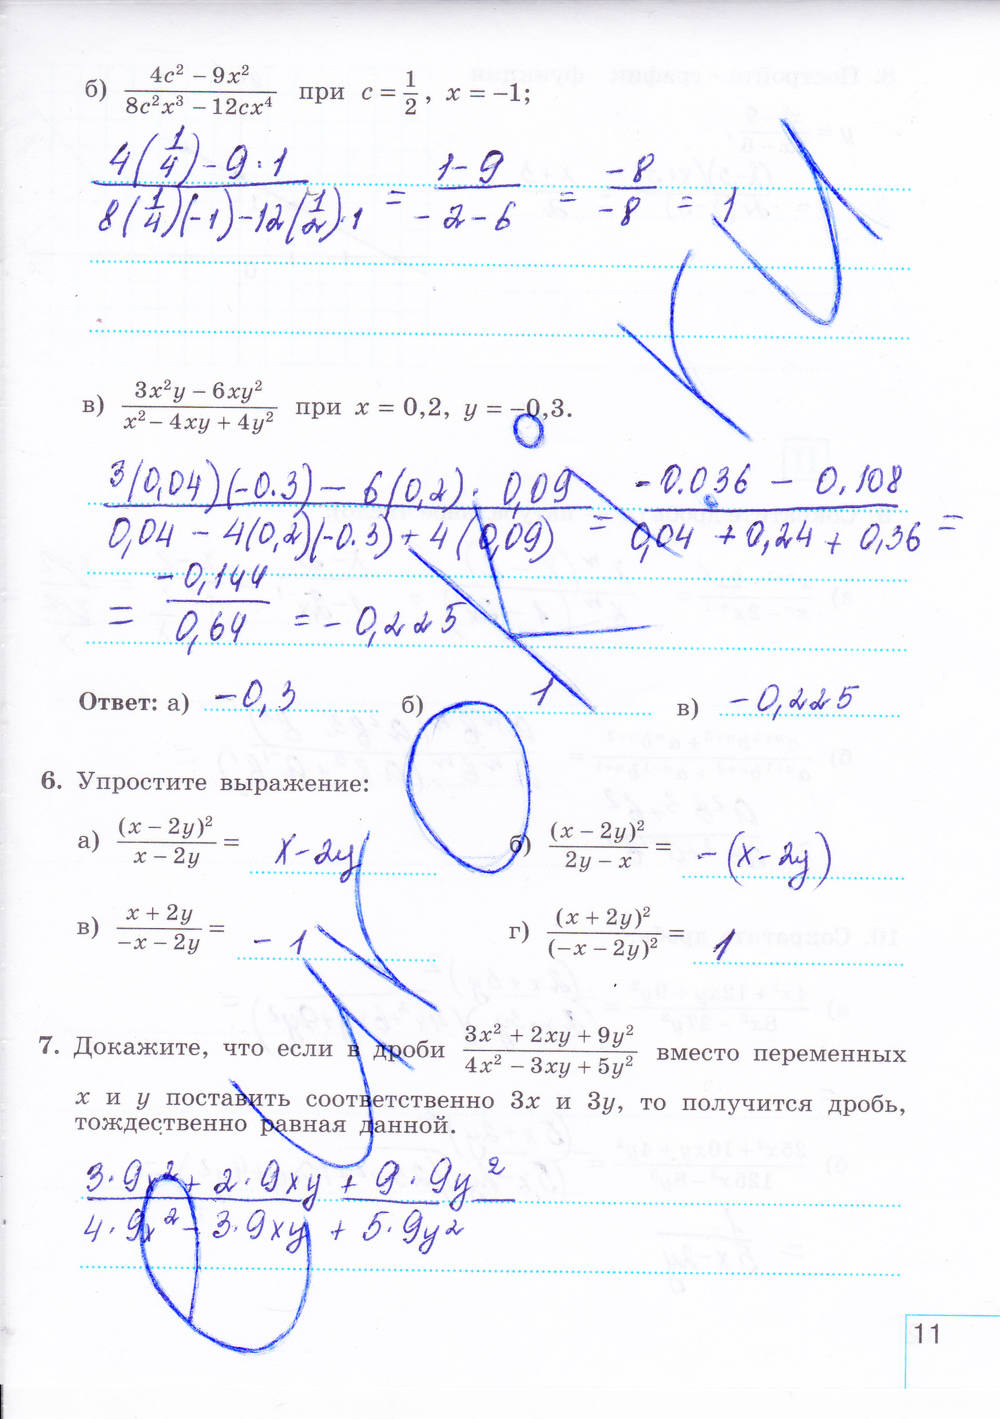 б) (4c² − 9x²)/(8c²x³ − 12cx⁴) при c = 1/2, x = −1;
(4(1/4) − 9·1)/(8(1/4)(−1) − 12(1/2)·1) = (1−9)/(−2−6) = (−8)/(−8) = 1
в) (3x²y − 6xy²)/(x² − 4xy + 4y²) при x = 0,2, y = −0,3.
(3(0,04)(−0.3) − 6(0,2)·0,09)/(0,04 − 4(0,2)(−0.3) + 4(0,09)) = (−0.036 − 0,108)/(0,04 + 0,24 + 0,36) =
= (−0,144)/(0,64) = −0,225
Ответ: а) −0,3 б) 1 в) −0,225
6. Упростите выражение:
а) (x − 2y)²/(x − 2y) = x−2y б) (x − 2y)²/(2y − x) = −(x−2y)
в) (x + 2y)/(−x − 2y) = −1 г) (x + 2y)²/(−x − 2y)² = 1
7. Докажите, что если в дроби (3x² + 2xy + 9y²)/(4x² − 3xy + 5y²) вместо переменных
x и y поставить соответственно 3x и 3y, то получится дробь,
тождественно равная данной.
(3·9x² + 2·9xy + 9·9y²)/(4·9x² − 3·9xy + 5·9y²)
11